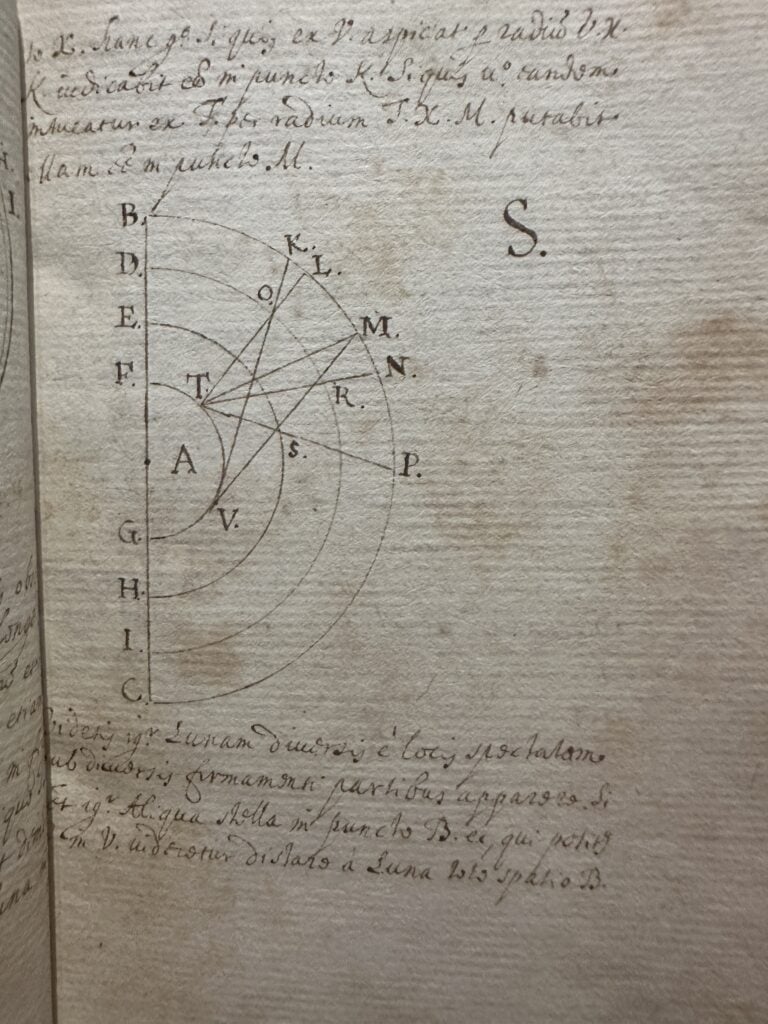 X. Hanc gr. Si quis ex V. aspiciat p radiũ V. X.
K. iudicabit eẽ in puncto K. Si quis uo. eandem
intueatur ex T. per radium T. X. M. putabit
illam eẽ in puncto M.
B.
S.
K.
L.
D.
O.
E.
M.
F.
T.
N.
R.
A
S.
P.
V.
G.
H.
I.
C.
Videtis igr. Lunam diuersis è locis spectatam
sub diuersis firmamenti partibus apparere. Si
igr. Aliqua stella in puncto B. ei, qui
in V. uideretur distare à Luna toto spatio B.